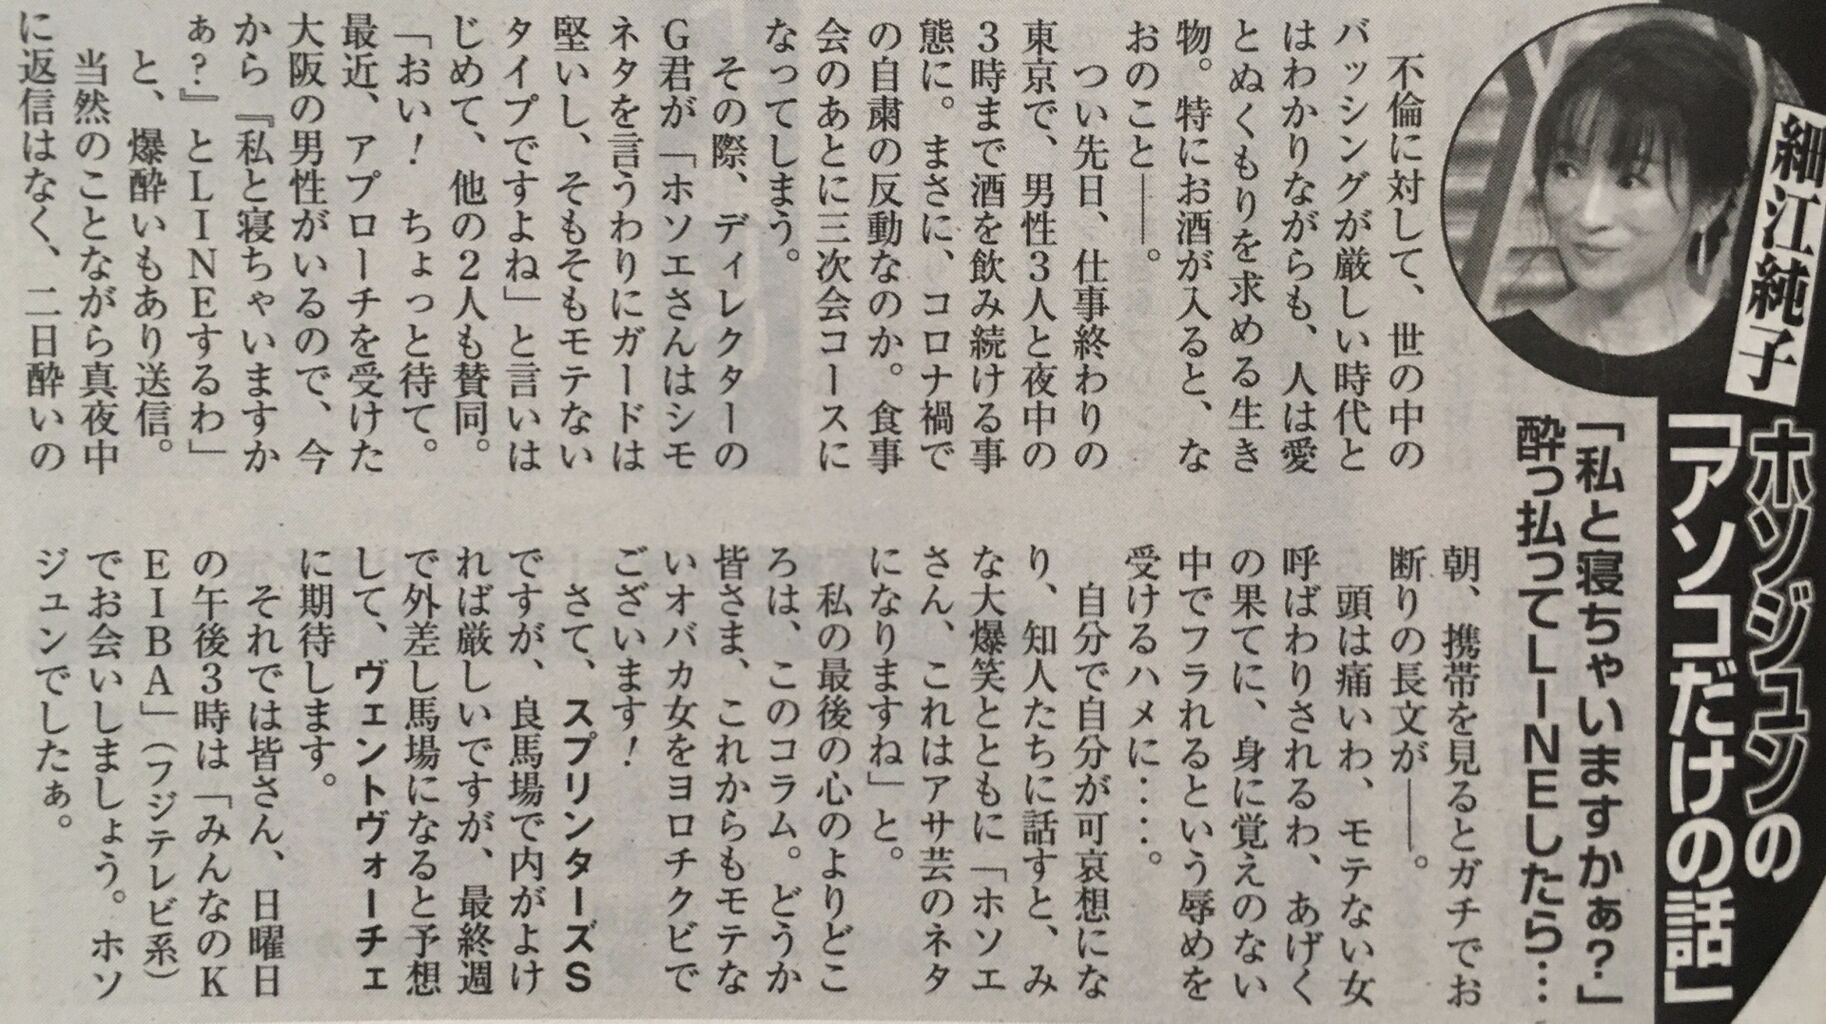 細江純子
ホソジュンの
「アソコだけの話」
「私と寝ちゃいますかぁ?」
酔っ払ってLINEしたら…
不倫に対して、世の中の
バッシングが厳しい時代と
はわかりながらも、人は愛
とぬくもりを求める生き
物。特にお酒が入ると、な
おのこと――。
つい先日、仕事終わりの
東京で、男性3人と夜中の
3時まで酒を飲み続ける事
態に。まさに、コロナ禍で
の自粛の反動なのか。食事
会のあとに三次会コースに
なってしまう。
その際、ディレクターの
G君が「ホソエさんはシモ
ネタを言うわりにガードは
堅いし、そもそもモテない
タイプですよね」と言いは
じめて、他の2人も賛同。
「おい! ちょっと待て。
最近、アプローチを受けた
大阪の男性がいるので、今
から『私と寝ちゃいますか
ぁ?』とLINEするわ」
と、爆酔いもあり送信。
当然のことながら真夜中
に返信はなく、二日酔いの
朝、携帯を見るとガチでお
断りの長文が――。
頭は痛いわ、モテない女
呼ばわりされるわ、あげく
の果てに、身に覚えのない
中でフラれるという辱めを
受けるハメに‥‥。
自分で自分が可哀想にな
り、知人たちに話すと、み
な大爆笑とともに「ホソエ
さん、これはアサ芸のネタ
になりますね」と。
私の最後の心のよりどこ
ろは、このコラム。どうか
皆さま、これからもモテな
いオバカ女をヨロチクビで
ございます!
さて、スプリンターズS
ですが、良馬場で内がよけ
れば厳しいですが、最終週
で外差し馬場になると予想
して、ヴェントヴォーチェ
に期待します。
それでは皆さん、日曜日
の午後3時は「みんなのK
EIBA」(フジテレビ系)
でお会いしましょう。ホソ
ジュンでしたぁ。